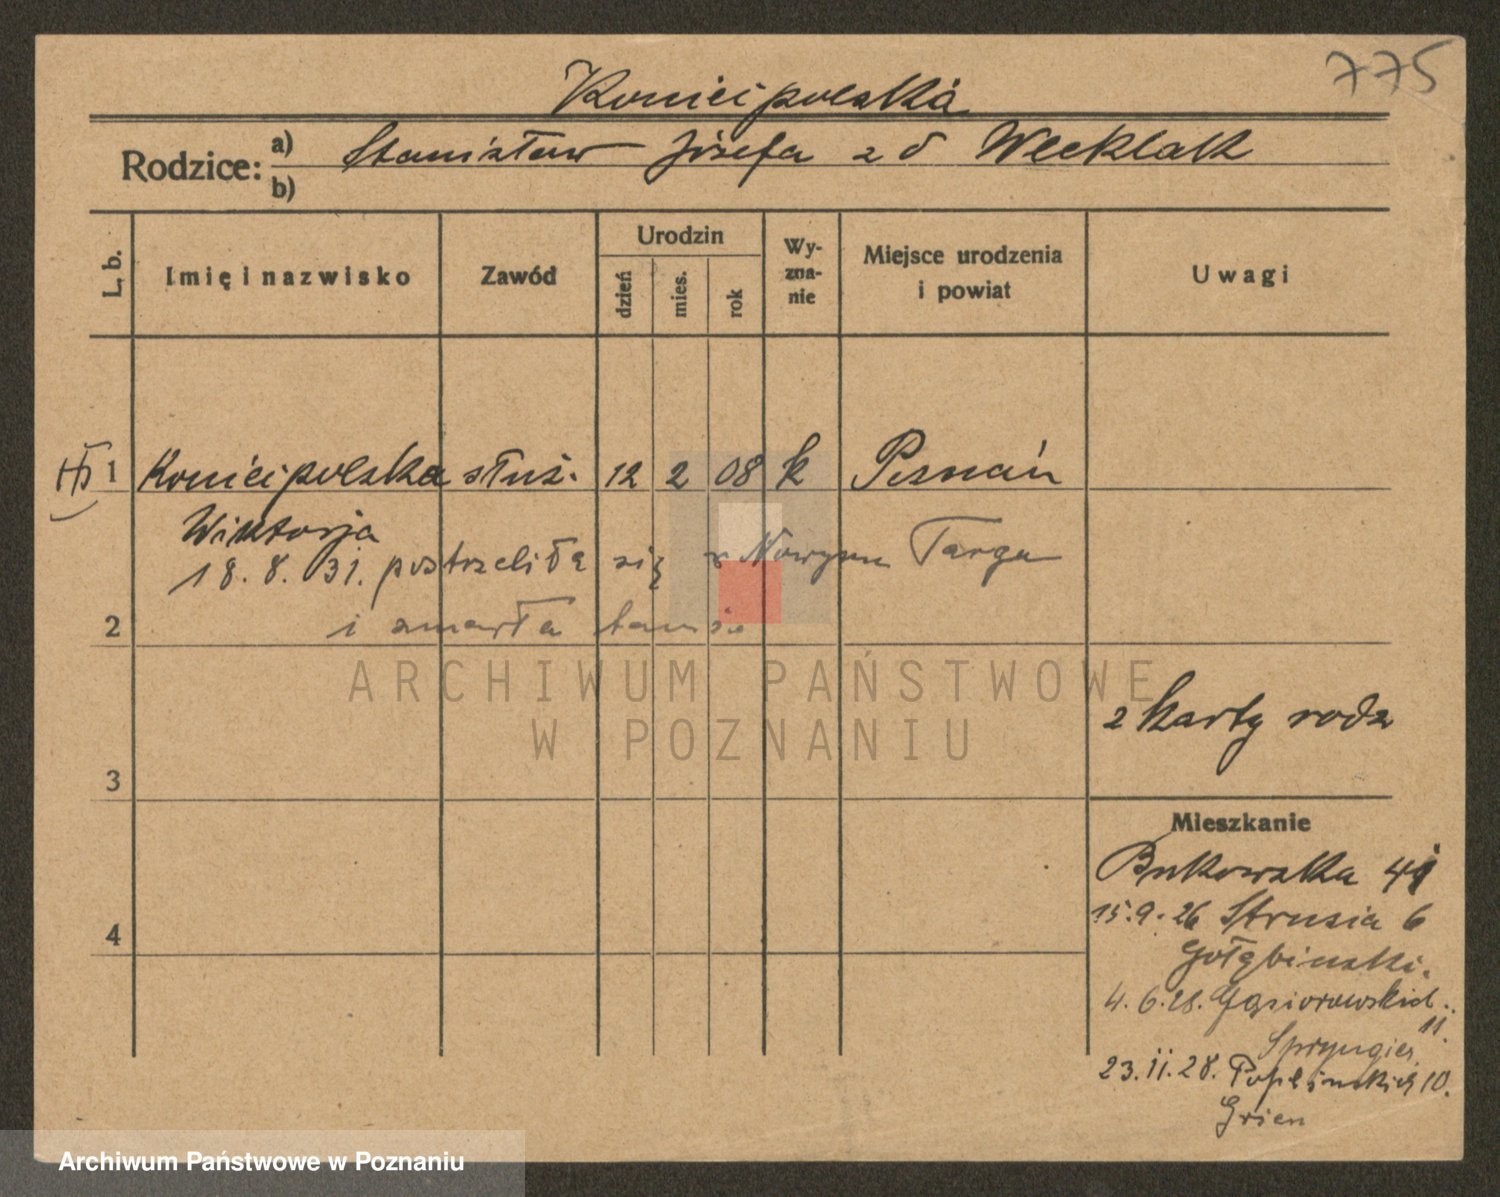 775
Koniecpolska
Rodzice: a) Stanisław Józefa z d Wecklak
b)
L. b. Imię i nazwisko Zawód Urodzin dzień mies. rok Wy-zna-nie Miejsce urodzenia i powiat Uwagi
1 Koniecpolska służ. 12 2 08 k Poznań
Wiktorja
18. 8. 31. postrzeliła się w Nowym Targu
2 i zmarła tamże
ARCHIWUM PAŃSTWOWE
W POZNANIU
z karty rodz
3
Mieszkanie
Bukowska 41
15.9.26 Strusia 6
4 Gołębinski.
4. 6. 28. Gąsiorowskich
11.
Spryngier
23. 11. 28. Poplinskich 10.
Grien
Archiwum Państwowe w Poznaniu